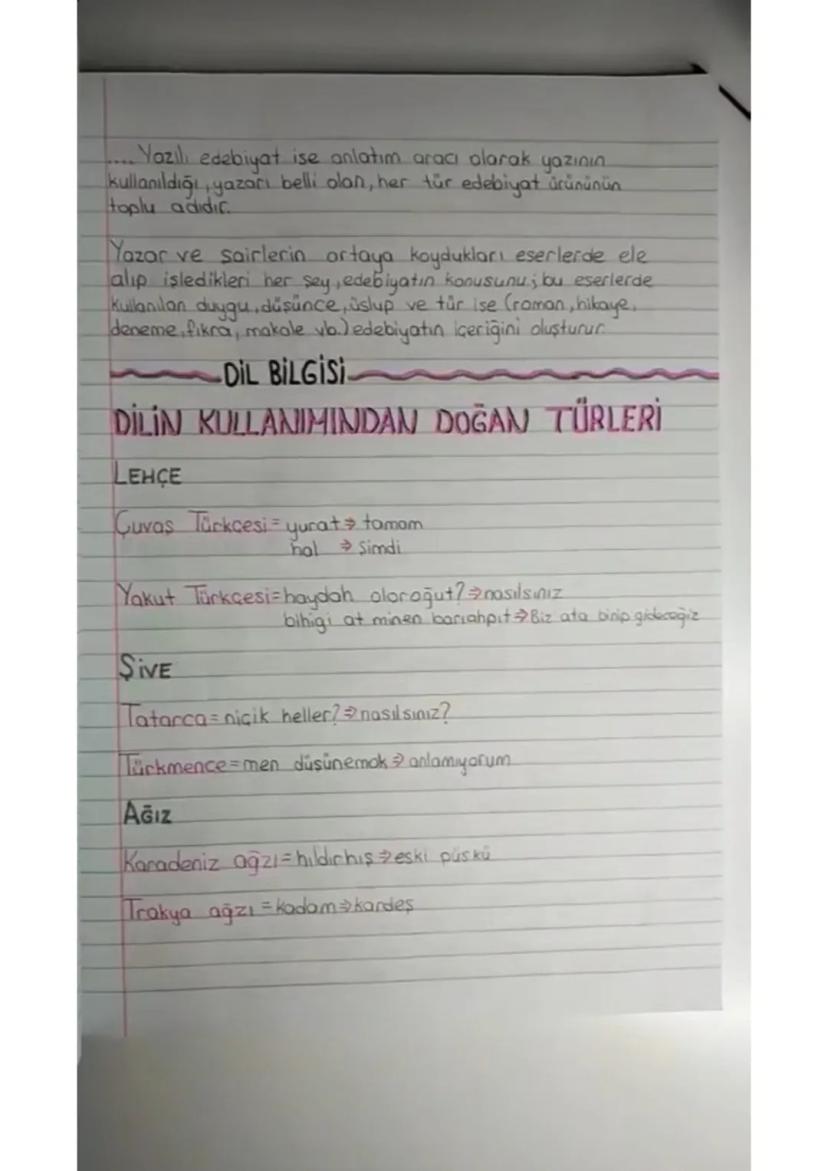 .... Yazılı edebiyat ise anlatım aracı olarak yazının
kullanıldığı, yazarı belli olan, her tür edebiyat ürününün
toplu adıdır.
Yazar ve şairlerin ortaya koydukları eserlerde ele
alıp işledikleri her şey, edebiyatın konusunu; bu eserlerde
kullanılan duygu, düşünce, üslup ve tür ise (roman, hikaye,
deneme, fıkra, makale vb.) edebiyatın içeriğini oluşturur.
DİL BİLGİSİ
DİLİN KULLANIMINDAN DOĞAN TÜRLERİ
LEHÇE
Çuvaş Türkçesi = yurat ⇒ tamam
hal ⇒ Şimdi
Yakut Türkçesi = haydah oloroğut? ⇒ nasılsınız
bihigi at minen barıahpıt ⇒ Biz ata binip gideceğiz
ŞİVE
Tatarca = niçik heller? ⇒ nasılsınız?
Türkmence = men düşünemok ⇒ anlamıyorum
AĞIZ
Karadeniz ağzı = hıldırhış ⇒ eski püskü
Trakya ağzı = kadam ⇒ kardeş